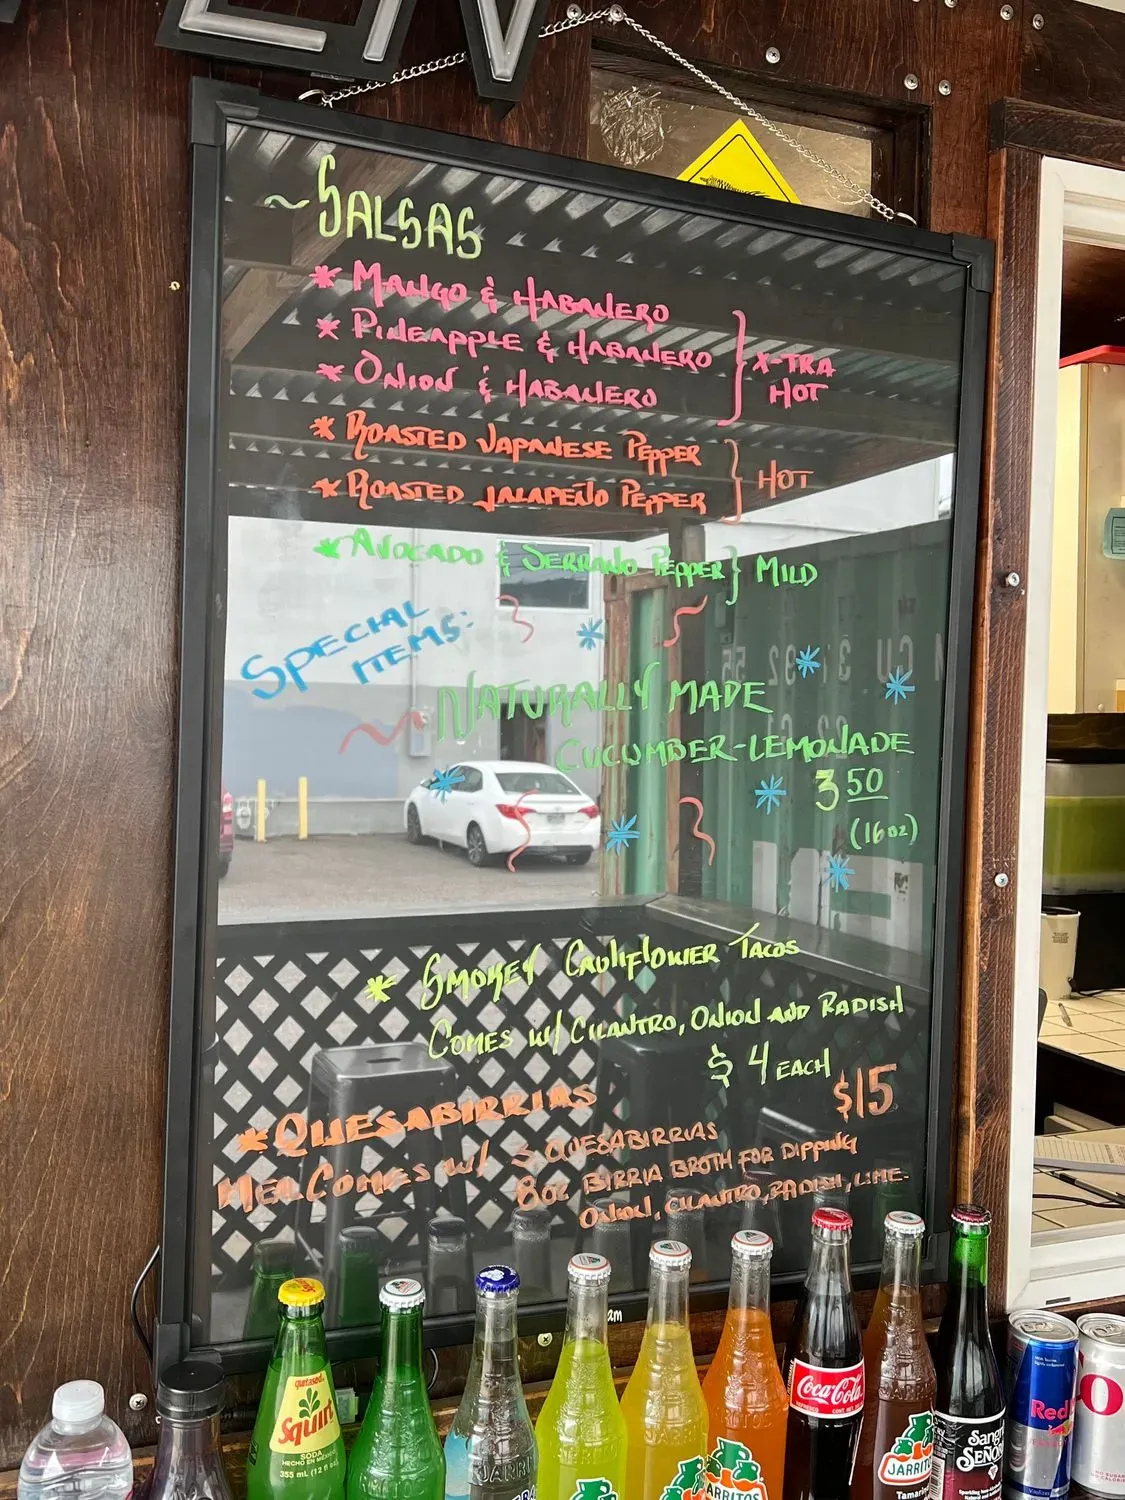 EN
~SALSAS
* MANGO & HABANERO
* PINEAPPLE & HABANERO
* ONION & HABANERO
X-TRA HOT
* ROASTED JAPANESE PEPPER
* ROASTED JALAPEÑO PEPPER
HOT
* AVOCADO & SERRANO PEPPER
MILD
SPECIAL ITEMS:
NATURALLY MADE
CUCUMBER-LEMONADE
3.50
(16oz)
* SMOKEY CAULIFLOWER TACOS
COMES W/ CILANTRO, ONION AND RADISH
$4 EACH
* QUESABIRRIAS $15
COMES W/ 3 QUESABIRRIAS
8oz BIRRIA BROTH FOR DIPPING
ONION, CILANTRO, RADISH, LIME.
Squirt
SODA
HECHO EN MÉXICO
355 mL
JARRITOS
Coca-Cola
JARRITOS
Tamarindo
Sangria
SEÑORIAL
Red